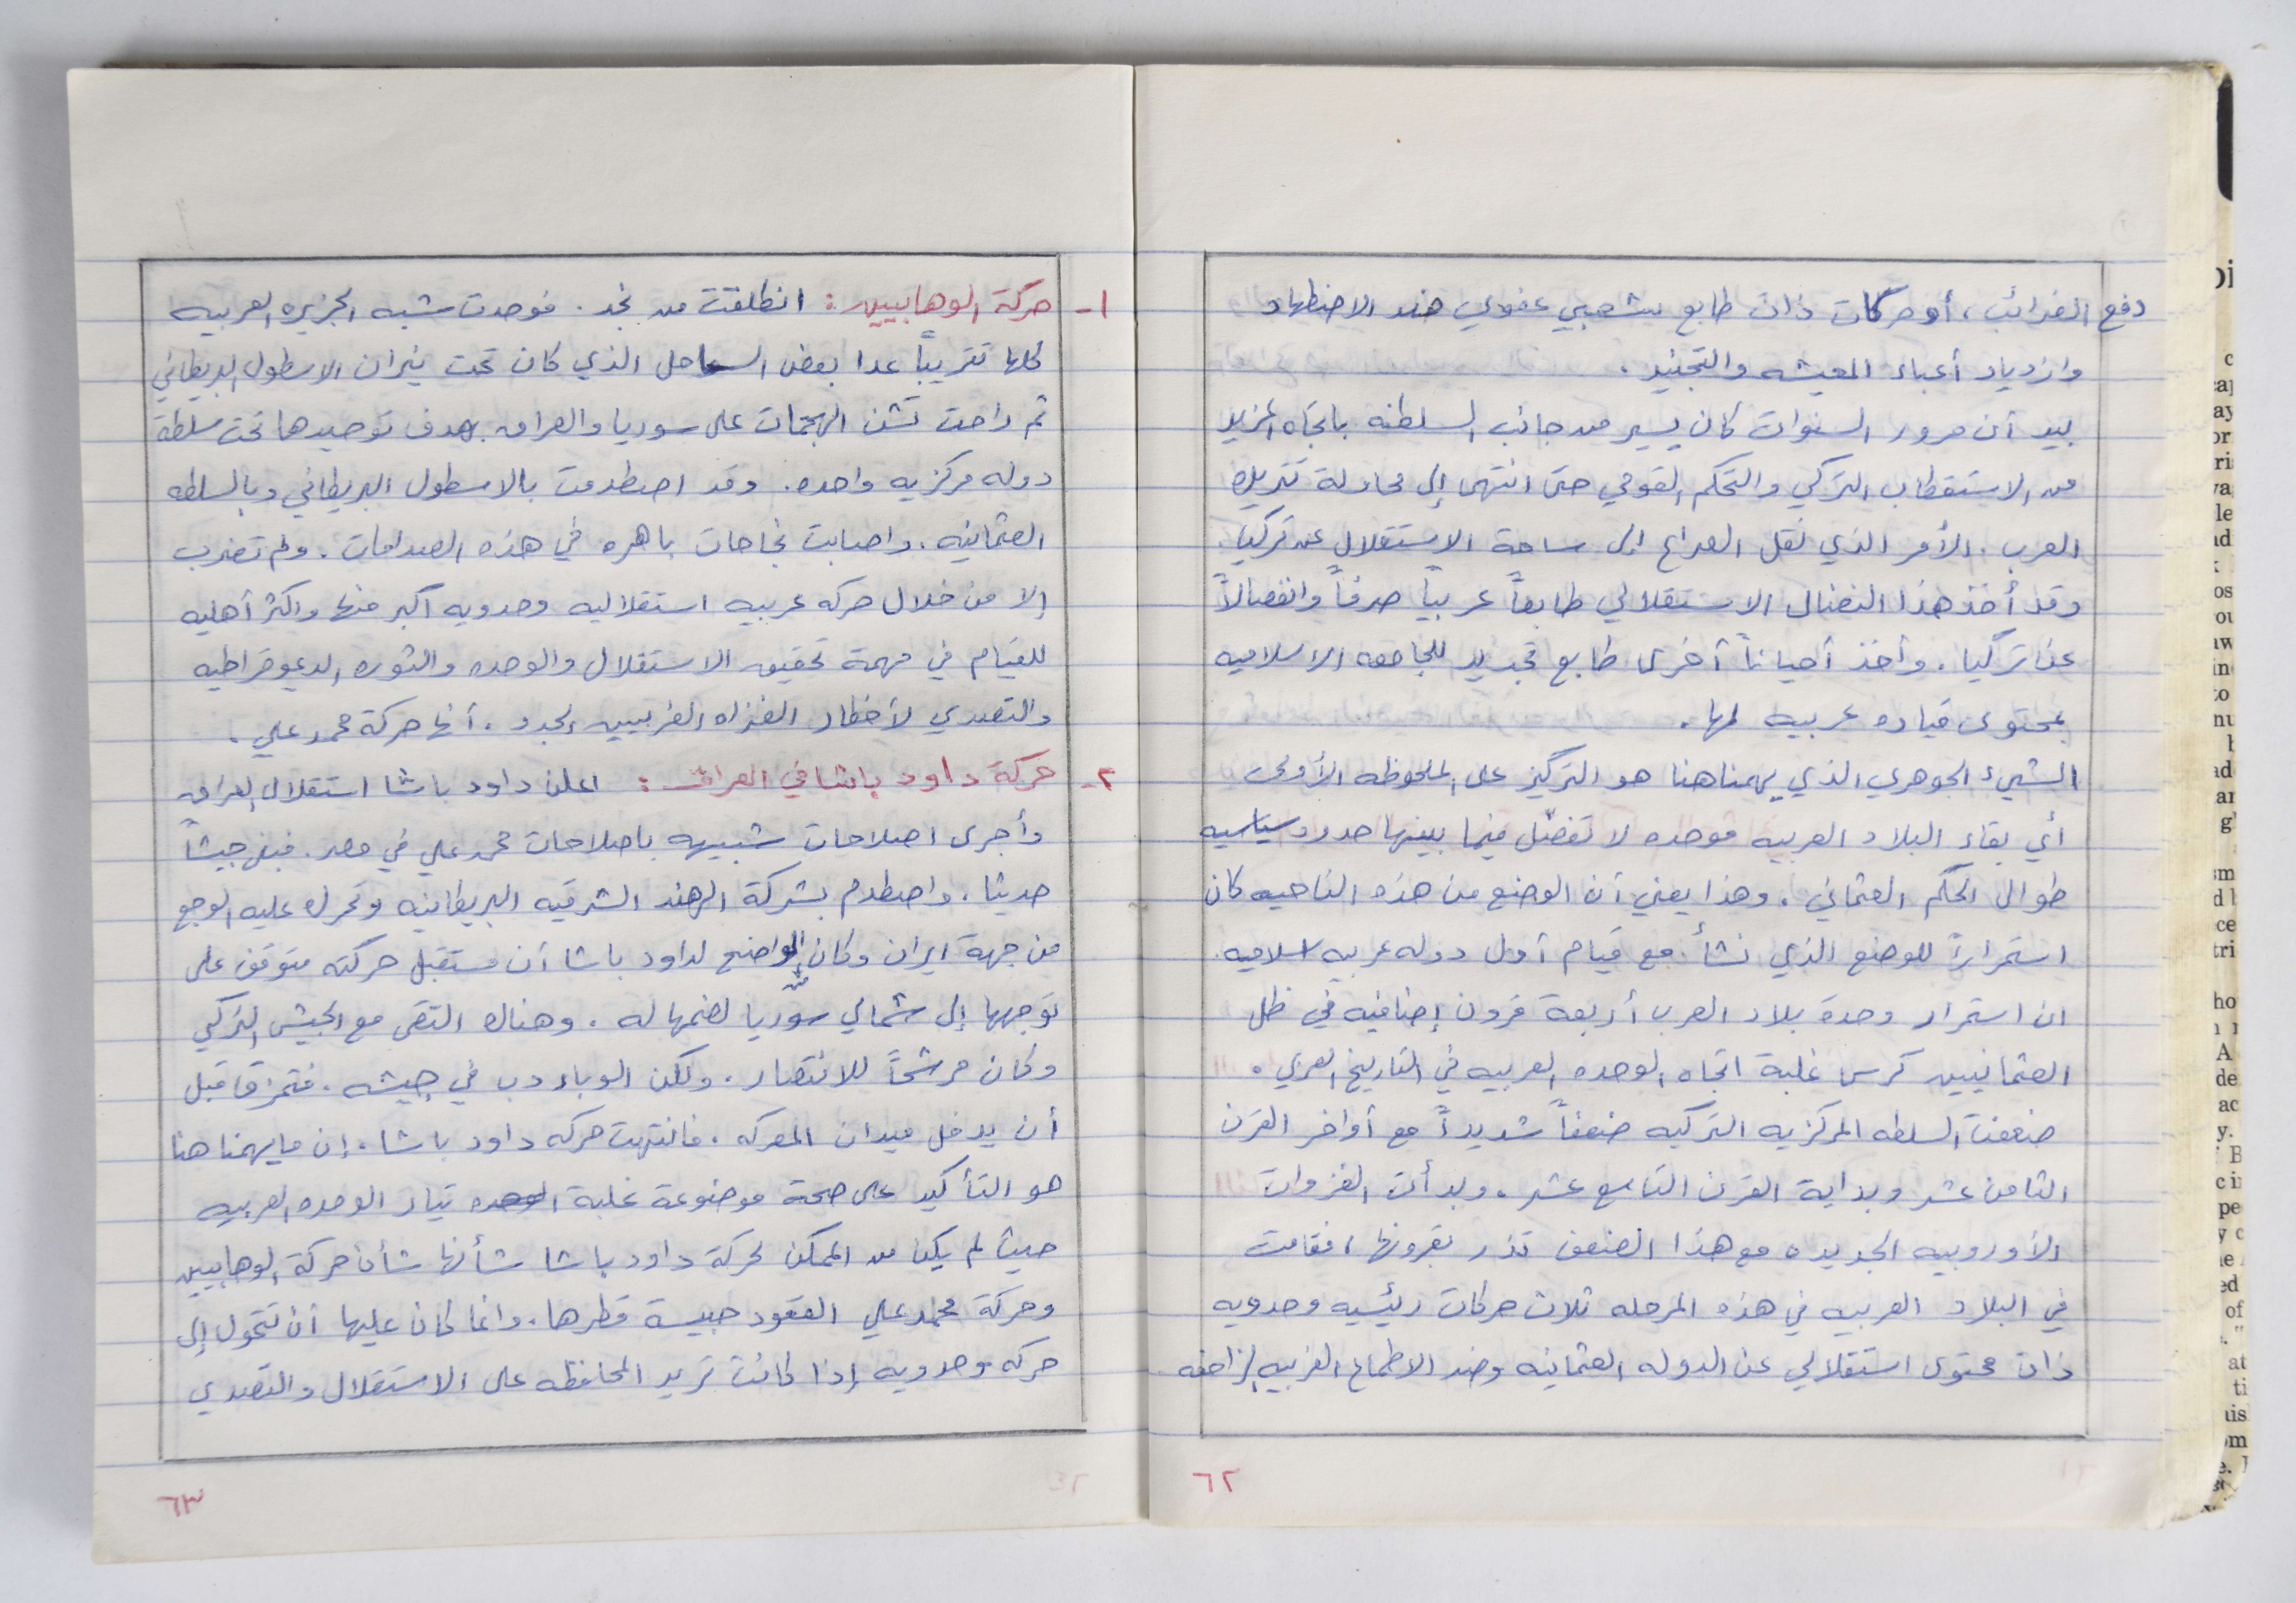 دفع الضرائب، أو حركات ذات طابع شعبي عفوي ضد الاضطهاد
وازدياد أعباء المعيشه والتجنيد.
بيد أن مرور السنوات كان يسير من جانب السلطنه باتجاه المزيد
من الاستقطاب التركي والتحكم القومي حتى انتهى إلى محاولة تتريك
العرب. الأمر الذي نقل الصراع إلى ساحة الاستقلال عن تركيا.
وقد أخذ هذا النضال الاستقلالي طابعاً عربياً صرفاً وانفصالاً
عن تركيا. وأخذ أحياناً أخرى طابع تجديد للجامعه الاسلاميه
بمحتوى قياده عربيه لها.
الشيء الجوهري الذي يهمنا هنا هو التركيز على الملحوظه الأولى
أي بقاء البلاد العربيه موحده لا تفصّل فيما بينها حدود سياسيه
طوال الحكم العثماني. وهذا يعني أن الوضع من هذه الناحيه كان
استمراراً للوضع الذي نشأ مع قيام أول دوله عربيه اسلاميه.
ان استمرار وحدة بلاد العرب أربعة قرون إضافيه في ظل
العثمانيين كرس غلبة اتجاه الوحده العربيه في التاريخ العربي.
ضعفت السلطه المركزيه التركيه ضعفاً شديداً مع أواخر القرن
الثامن عشر وبداية القرن التاسع عشر. وبدأت الغزوات
الأوروبيه الجديده مع هذا الضعف تذر بقرونها، فقامت
في البلاد العربيه في هذه المرحله ثلاث حركات رئيسيه وحدويه
ذات محتوى استقلالي عن الدوله العثمانيه وضد الاطماع الغربيه الزاحفه
٦٢
١- حركة الوهابيين: انطلقت من نجد. فوحدت شبه الجزيره العربيه
كلها تقريباً عدا بعض الساحل الذي كان تحت نيران الاسطول البريطاني
ثم راحت تشن الهجمات على سوريا والعراق بهدف توحيدها تحت سلطة
دوله مركزيه واحده. وقد اصطدمت بالاسطول البريطاني وبالسلطه
العثمانيه، واصابت نجاحات باهره في هذه الصدامات. ولم تضرب
إلا من خلال حركه عربيه استقلاليه وحدويه اكبر منها واكثر أهليه
للقيام في مهمة تحقيق الاستقلال والوحده والثوره الديموقراطيه
والتصدي لأخطار الغزاه الغربيين الجدد. أنها حركة محمد علي.
٢- حركة داود باشا في العراق: اعلن داود باشا استقلال العراق
وأجرى اصلاحات شبيهه باصلاحات محمد علي في مصر. فبنى جيشاً
حديثا. واصطدم بشركة الهند الشرقيه البريطانيه وتحرك عليه الوجع
من جهة ايران وكان الواضح لداود باشا أن مستقبل حركته متوقف على
توجهها إلى شمالي سوريا لضمها له. وهناك التقى مع الجيش التركي
وكان مرشحاً للانتصار. ولكن الوباء دب في جيشه. فتمزق قبل
أن يدخل ميدان المعركه. فانتهت حركه داود باشا. إن ما يهمنا هنا
هو التأكيد على صحة موضوعة غلبة تيار الوحده العربيه
حيث لم يكن من الممكن لحركة داود باشا شأنها شأن حركة الوهابيين
وحركة محمد علي القعود حبيسة قطرها. وانما كان عليها أن تتحول إلى
حركه وحدويه إذا كانت تريد المحافظه على الاستقلال والتصدي
٦٣